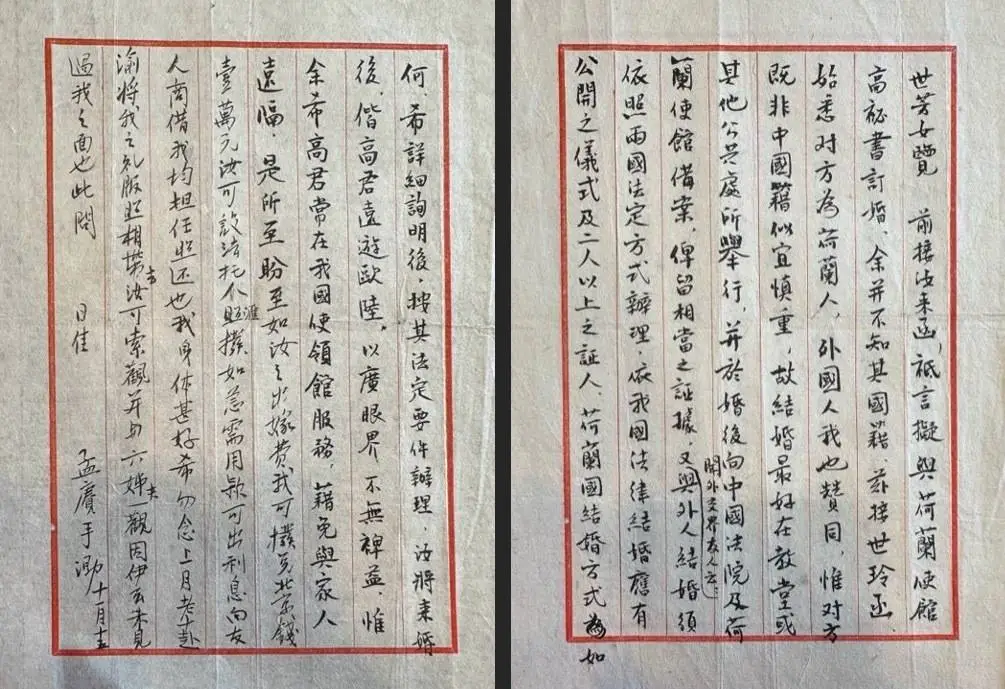 世芳女覽 前接汝来函，祇言擬與荷蘭使館
高秘書訂婚、余并不知其國籍、玆接世玲函
始悉对方為荷蘭人，外國人我也贊同，惟对方
既非中國籍似宜慎重，故結婚最好在教堂或
其他公共處所舉行，并於婚後向中國法院及荷
蘭使館備案，俾留相當之証據，又聞外交界友人云與外人結婚須
依照兩國法定方式辦理，依我國法律結婚應有
公開之儀式及二人以上之証人、荷蘭國結婚方式為如
何、希詳細詢明後，按其法定要件辦理，汝將来婚
後，偕高君遠遊歐陸，以廣眼界不無裨益，惟
余希高君常在我國使領館服務，藉免與家人
遠隔，是所至盼至如汝之出嫁費我可撲兌北京錢
壹萬元汝可設法托人匯撲如急需用款可出利息向友
人商借我均担任照还也我身体甚好希勿念上月老十赴
渝將我之礼服照相帶去汝可索觀并与六姊夫一觀因伊云未見
過我之面也此問 日佳 孟賡手泐